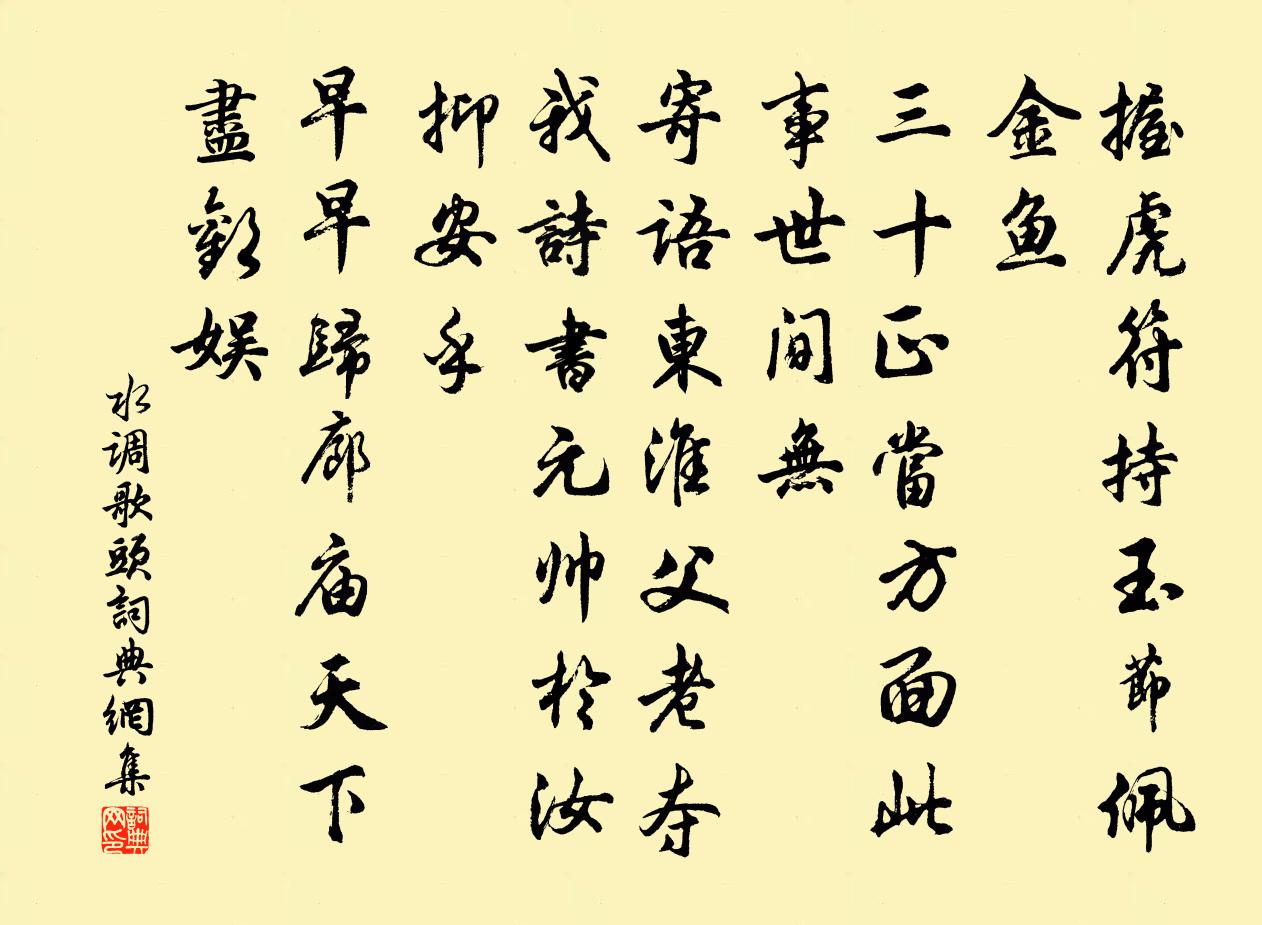 握虎符持玉節佩
金魚
三十正當方面此
事世间無
寄语東淮父老夺
我詩書元帅於汝
抑安乎
早早歸廊庙天下
盡歡娱
水调歌頭詞典網集
詞典
网印